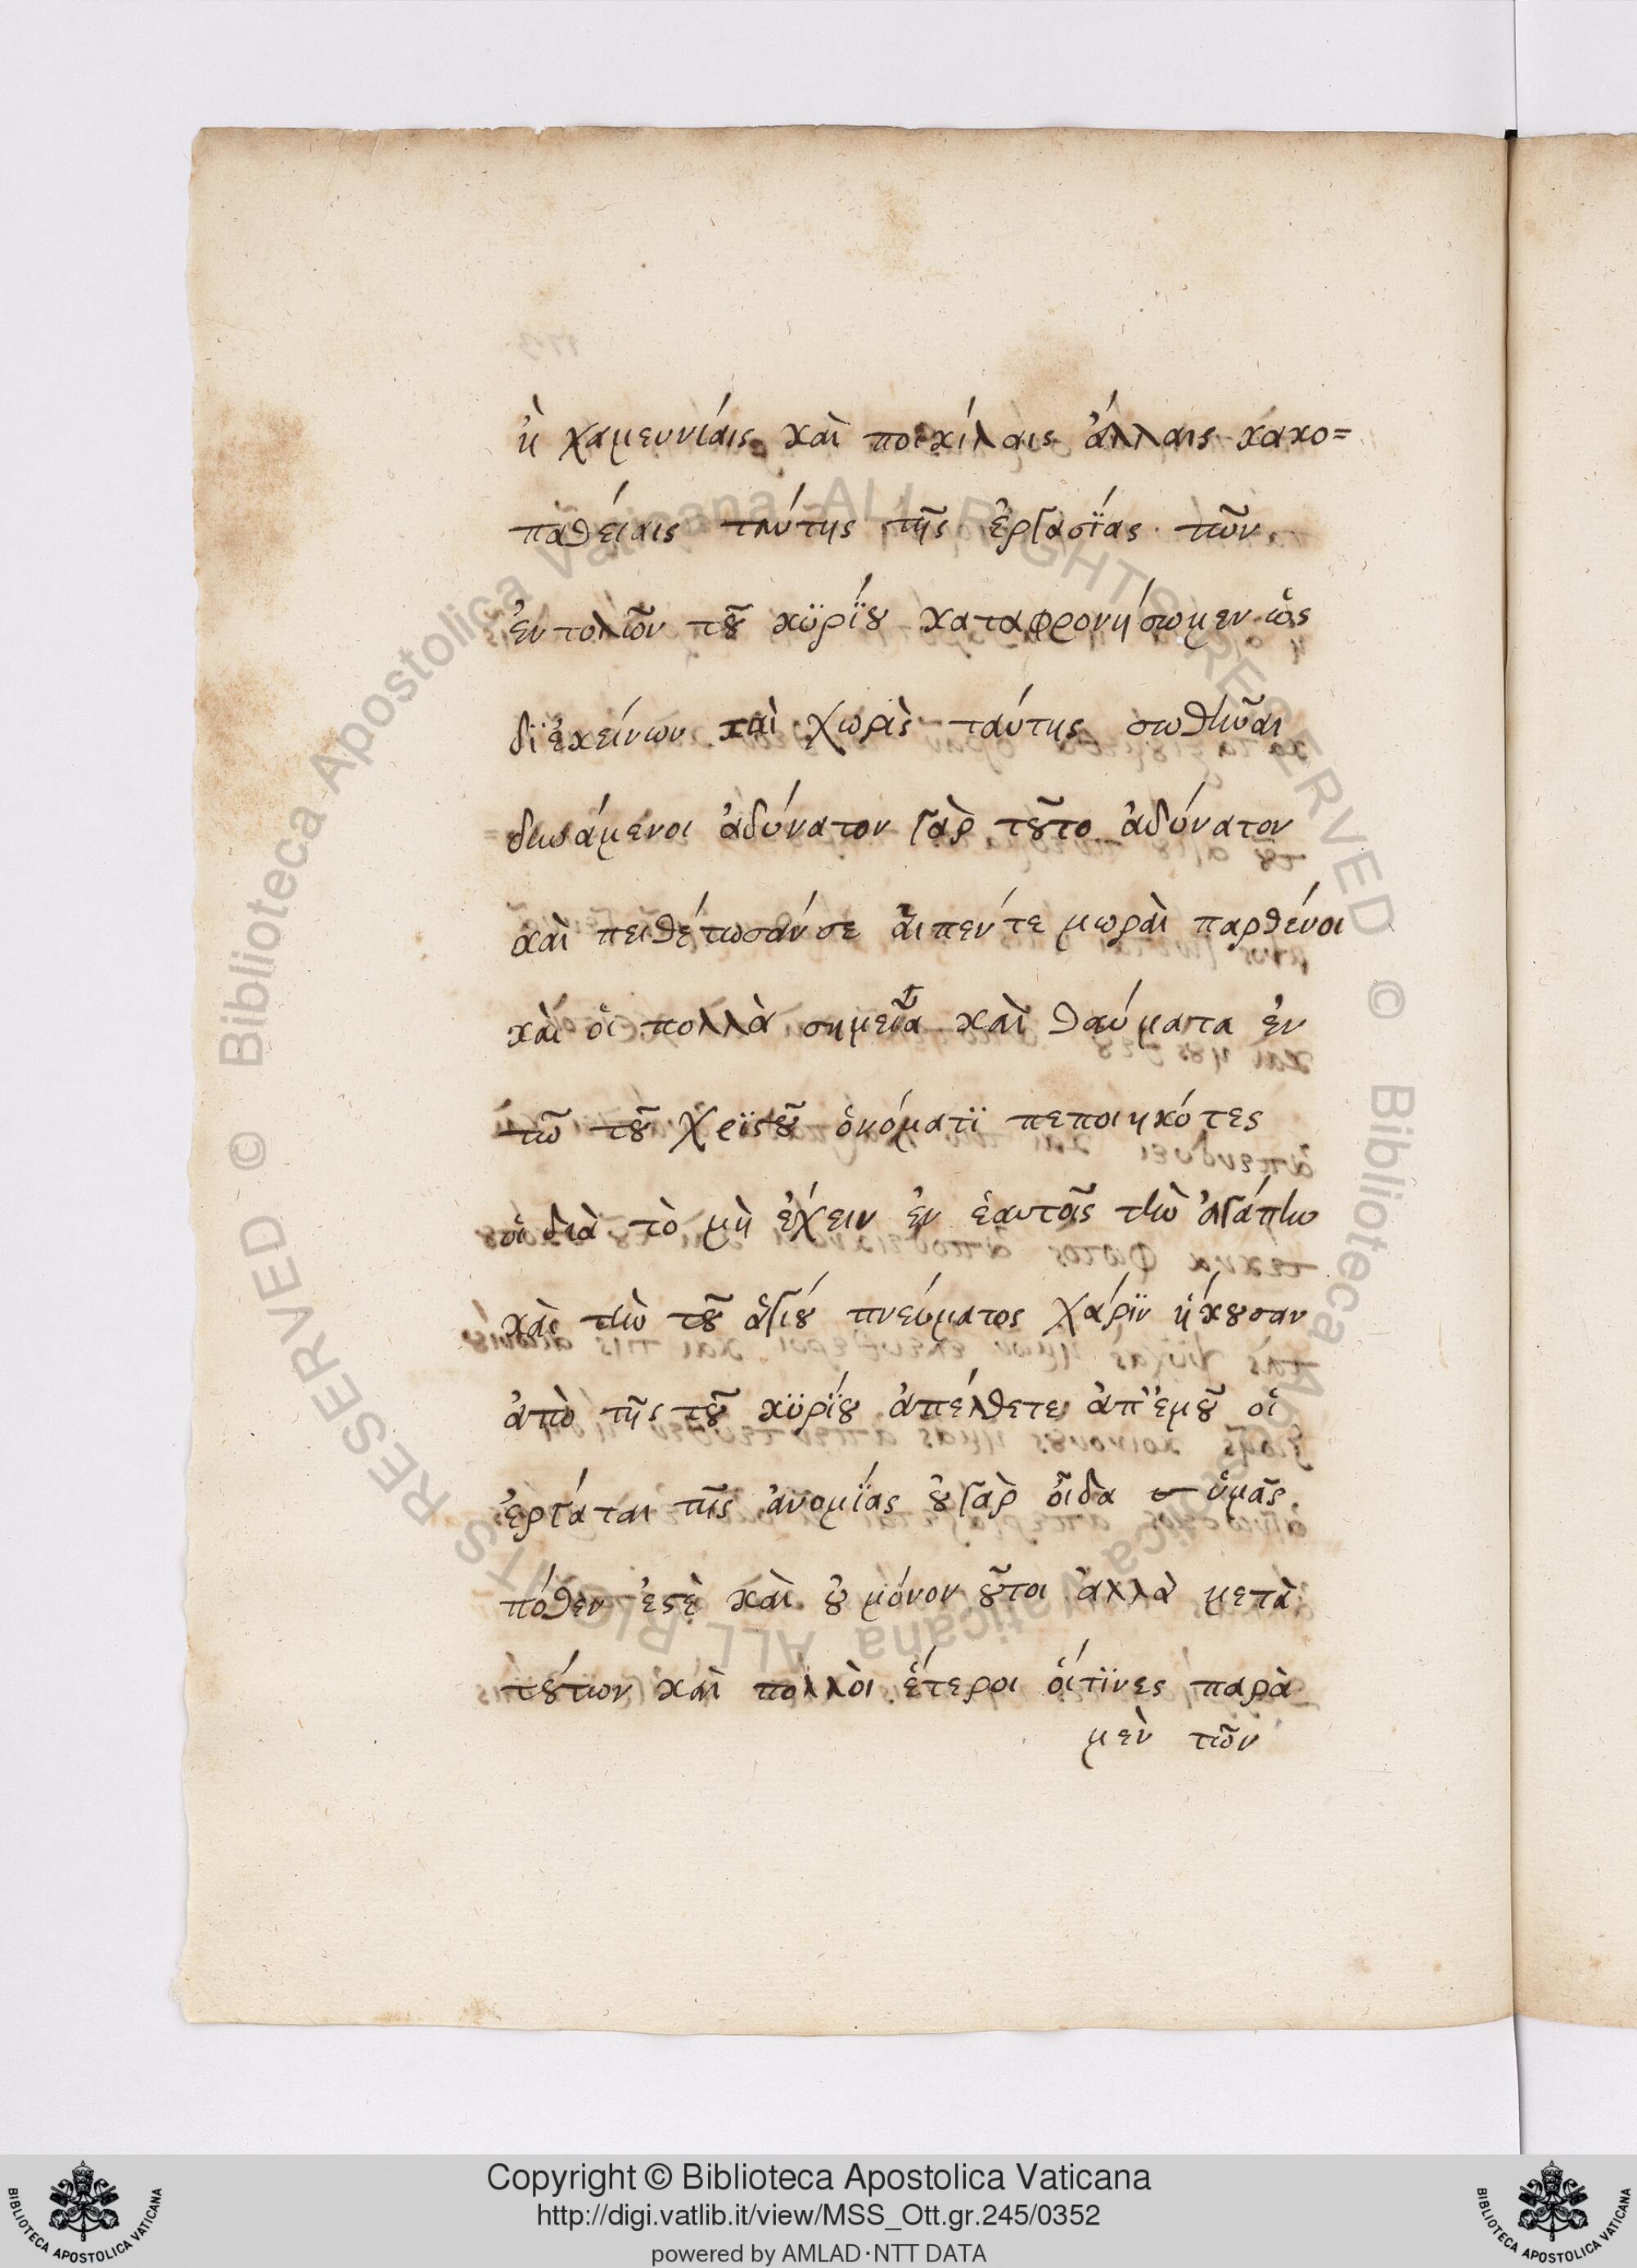 ἢ χαμευνίαις καὶ ποικίλαις ἄλλαις κακο=
παθείαις ταύτης τῆς ἐργασΐας τῶν
ἐντολῶν τȣ͂ κϋρΐȣ καταφρονήσωμεν ὡς
δϊ ἐκείνων καὶ χωρὶς ταύτης σωθῆναι
δυνάμενοι ἀδύνατον γὰρ τȣ͂το ἀδύνατον
καὶ πειθέτωσάν σε ἅι πέντε μωραὶ παρθένοι
καὶ ὁι πολλὰ σημεῖα καὶ θαύματα ἐν
τῶ τȣ͂ Χρϊστȣ͂ ὀνόματϊ πεποιηκότες
ὁι διὰ τὸ μὴ ἔχειν ἐν ἑαυτοῖς τὴν ἀγάπην
καὶ τὴν τȣ͂ ἁγίȣ πνεύματος χάρϊν ἤκȣσαν
ἀπὸ τῆς τȣ͂ κϋρΐȣ ἀπέλθετε ἀπ' ἐμȣ͂ οἱ
ἐργάται τῆς ἀνομΐας ȣ̓ γὰρ οἶδα ὑμᾶς
πόθεν ἐστὲ καὶ ȣ̓ μόνον ȣ̓͂τοι ἀλλὰ μετὰ
τȣ́των καὶ πολλοὶ ἕτεροι ὁίτϊνες παρὰ
μὲν τῶν
Copyright © Biblioteca Apostolica Vaticana
http://digi.vatlib.it/view/MSS_Ott.gr.245/0352
powered by AMLAD·NTT DATA
BIBLIOTECA APOSTOLICA VATICANA
BIBLIOTECA APOSTOLICA VATICANA
© Biblioteca Apostolica Vaticana ALL RIGHTS RESERVED
© Biblioteca Apostolica Vaticana ALL RIGHTS RESERVED